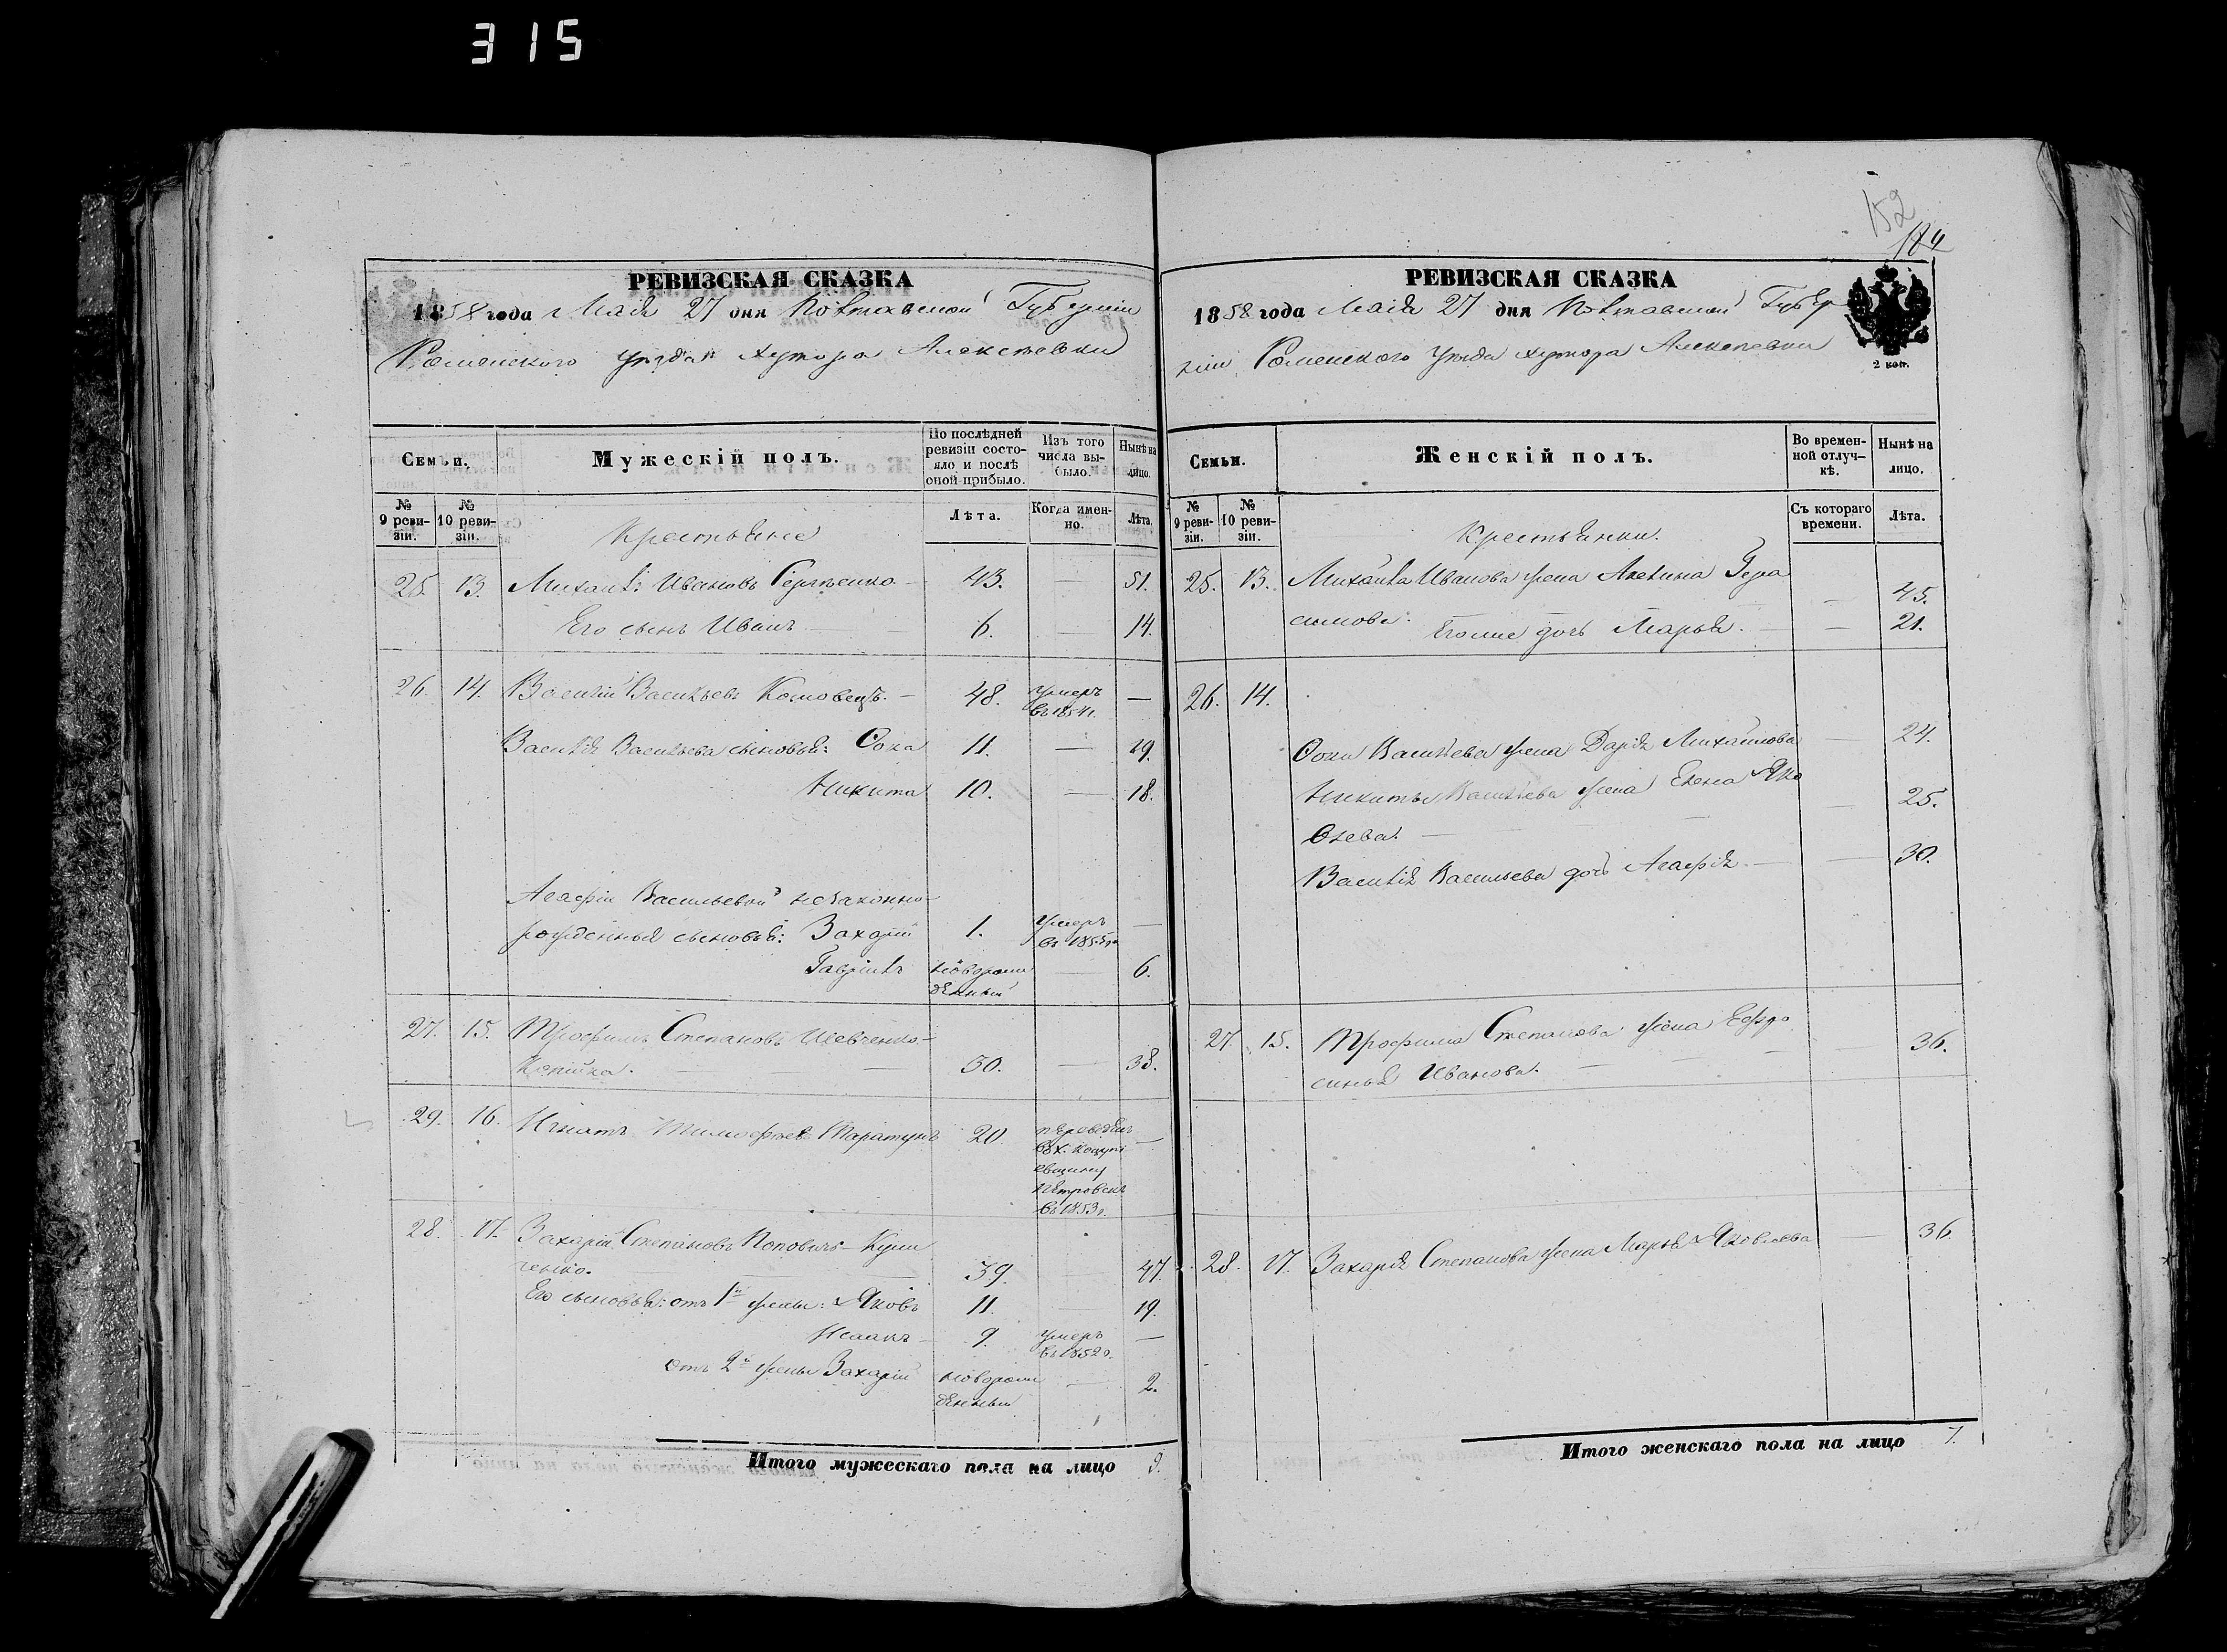 315
152
184
РЕВИЗСКАЯ СКАЗКА
1858 года Маія 27 дня Полтавской Губерніи
Роменского уѣзда хутора Алексѣевки
Семьи.
Мужескій полъ.
По послѣдней ревизіи состояло и послѣ оной прибыло.
Изъ того числа выбыло.
Нынѣ на лицо.
№ 9 ревизіи.
№ 10 ревизіи.
Крестьяне
Лѣта.
Когда именно.
Лѣта.
25. 13. Михаилъ Ивановъ 43. — 51.
Его сынъ Иванъ 6. — 14.
26. 14. Василій Васильевъ 48. умеръ —
въ 1854г.
Василія Васильева сыновья: Фока 11. — 19.
Никита 10. — 18.
Агафіи Васильевой незаконно-
рожденныя сыновья: Захарій 1. Умеръ —
въ 1855го
Гавріилъ новорож — 6.
денный
27. 15. Трофимъ Степановъ Шевченко-
30. — 38.
29. 16. Игнатъ Тимофѣевъ Таратунъ 20 переведенъ —
въ х.
Петровск
въ 1853г.
28. 17. Захарій Степановъ Поповичъ-Куш
ченко. 39. — 47.
Его сыновья: отъ 1й жены: Яковъ 11. — 19.
Исаакъ 9. умеръ —
въ 1852г.
отъ 2й жены Захарій новорож — 2.
денный
Итого мужескаго пола на лицо 9.
РЕВИЗСКАЯ СКАЗКА
1858 года Маія 27 дня Полтавской Губер
ніи Роменского уѣзда хутора Алексѣевки
2 коп.
Семьи.
Женскій полъ.
Во временной отлучкѣ.
Нынѣ на лицо.
№ 9 ревизіи.
№ 10 ревизіи.
Крестьянки.
Съ котораго времени.
Лѣта.
25. 13. Михаила Иванова жена Акелина Гера
симова. — 45.
Егоже дочь Марья. — 21.
26. 14.
Фоки Васильева жена Дарія Михайлова — 24.
Никиты Васильева жена Елена Яко
влева. — 25.
Василія Васильева дочь Агафія — 30.
27 15. Трофима Степанова жена Ефро
синья Иванова. — 36.
28. 17. Захарія Степанова жена Марья Яковлева — 36
Итого женскаго пола на лицо 7.